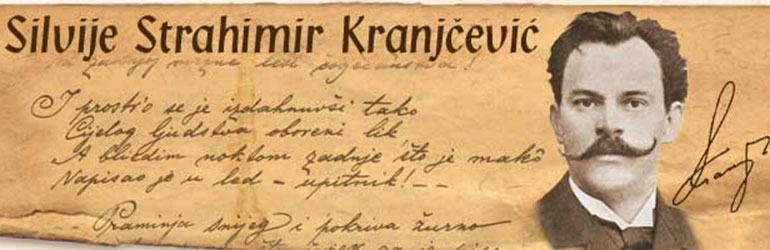 Silvije Strahimir Kranjčević
I prostr'o se je izdahnuvši tako
Cijelog ljudstva oboreni lik
A blijedim noktom zadnje što je mak'o
Napisao je u led – upitnik! – –
– Praminja snijeg i pokriva žurno